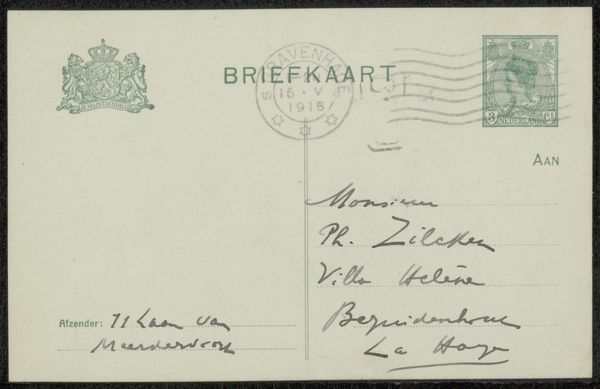 JE MAINTIENDRAI
BRIEFKAART
'S GRAVENHAGE
15 · V
1918
3 CT
NEDERLAND
AAN
Monsieur
Ph. Zilcken
Villa Hélène
Bezuidenhout
La Haye
Afzender: 71 Laan van
Meerdervoort